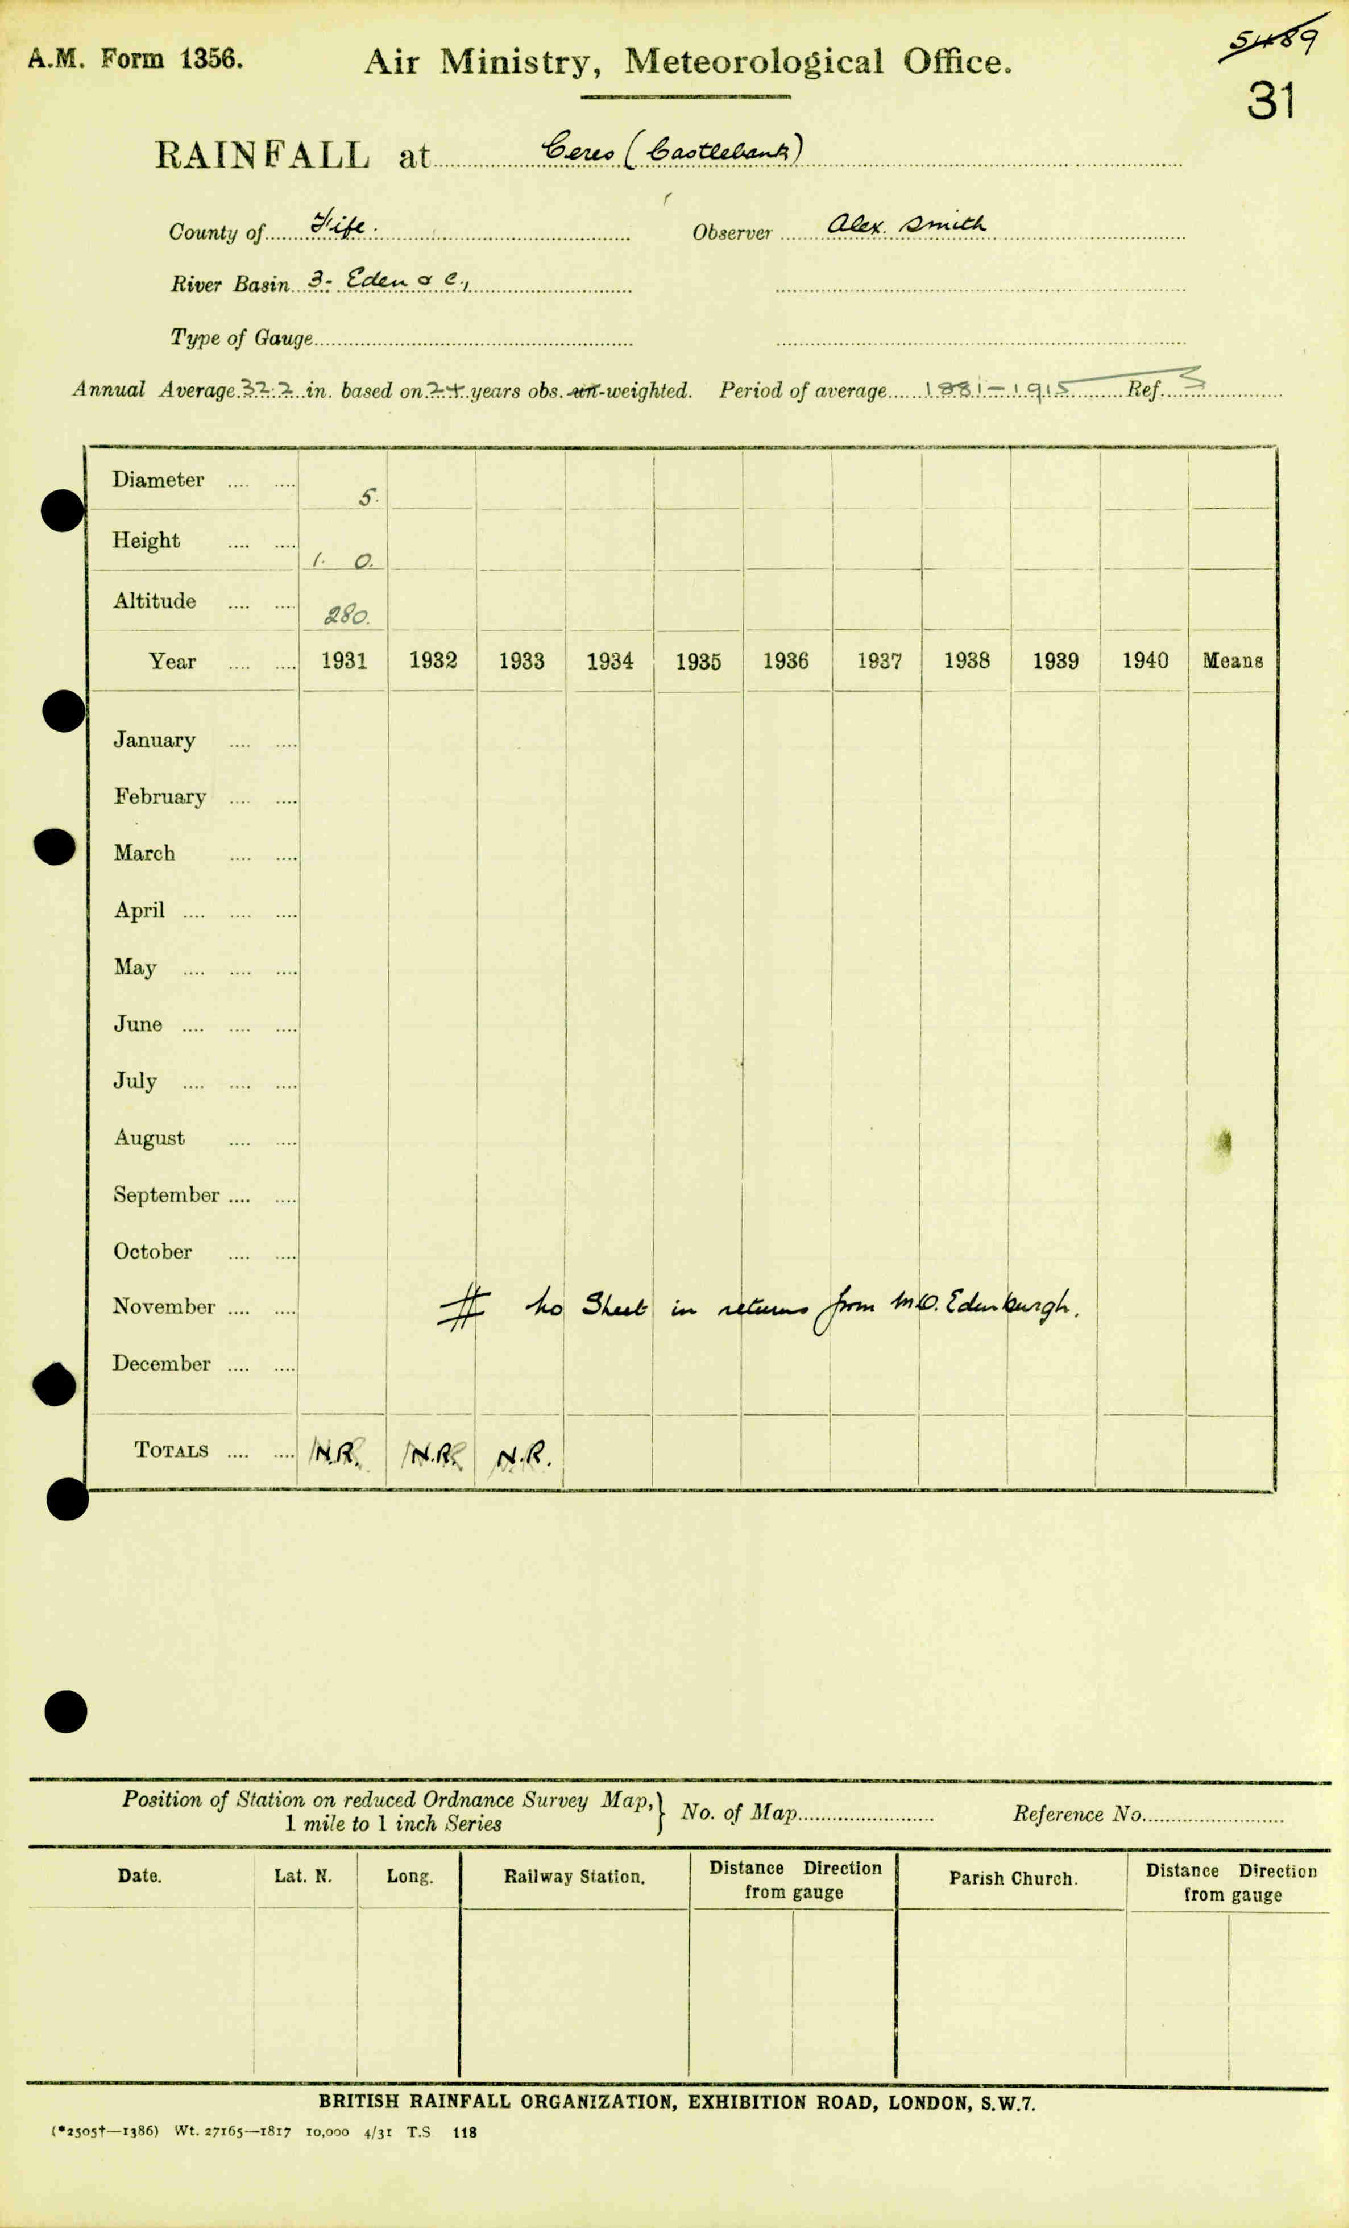 5489
A.M. Form 1356. Air Ministry, Meteorological Office.
31
RAINFALL at Ceres (Castlebank)
County of Fife. Observer Alex. Smith
River Basin 3- Eden & c.,
Type of Gauge
Annual Average 32.2 in. based on 24 years obs. un-weighted. Period of average 1881-1915 Ref. 3
Diameter .... .... 5.
Height .... .... 1. 0.
Altitude .... .... 280.
Year .... .... 1931 1932 1933 1934 1935 1936 1937 1938 1939 1940 Means
January .... ....
February .... ....
March .... ....
April .... .... ....
May .... .... ....
June .... .... ....
July .... .... ....
August .... ....
September .... ....
October .... ....
November .... .... # No Sheet in returns from M.O. Edinburgh.
December .... ....
TOTALS .... .... N.R. N.R. N.R.
Position of Station on reduced Ordnance Survey Map, } No. of Map Reference No.
1 mile to 1 inch Series
Date. Lat. N. Long. Railway Station. Distance Direction from gauge Parish Church. Distance Direction from gauge
BRITISH RAINFALL ORGANIZATION, EXHIBITION ROAD, LONDON, S.W.7.
(*2505†—1386) Wt. 27165—1817 10,000 4/31 T.S 118